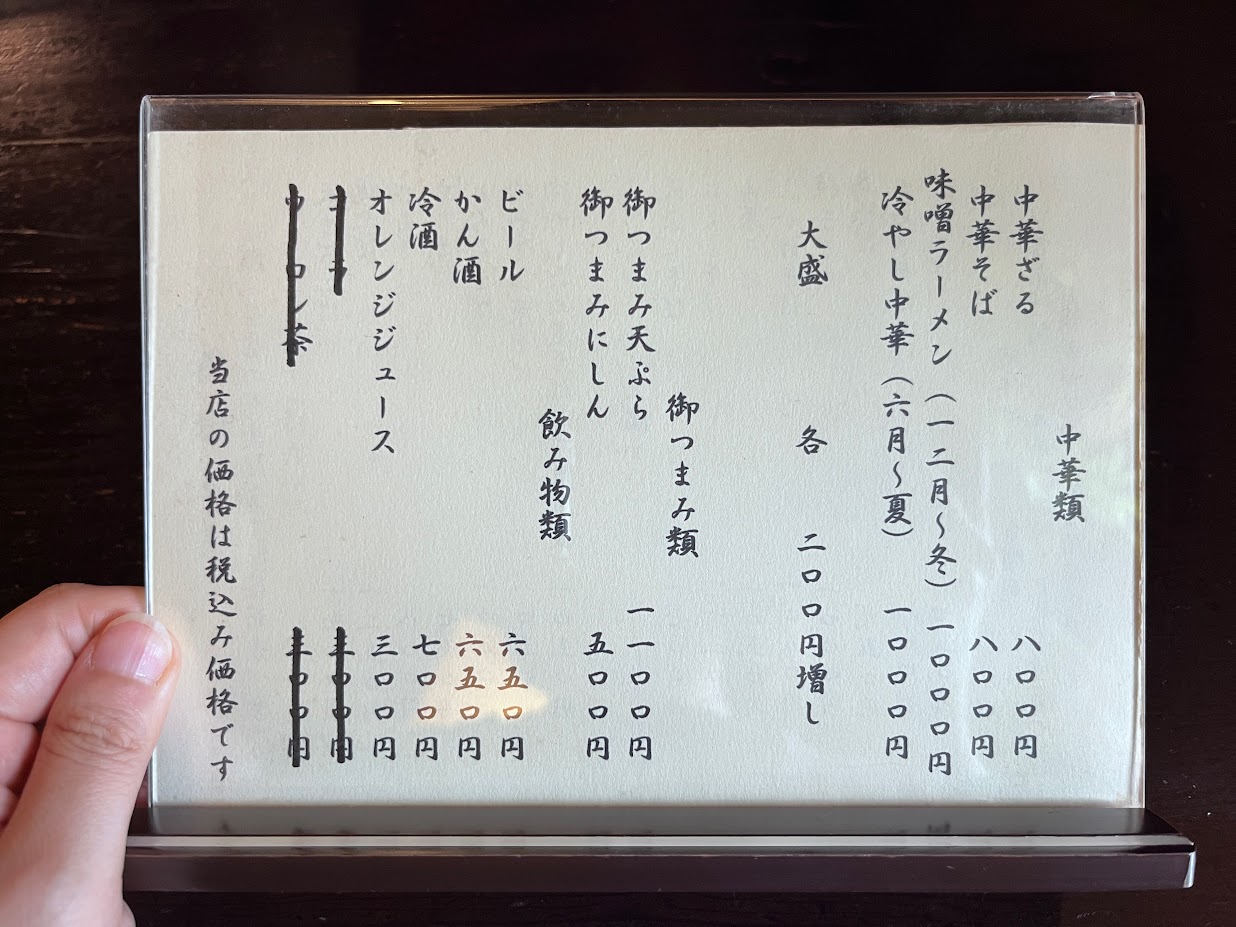 中華類
中華ざる 八〇〇円
中華そば 八〇〇円
味噌ラーメン（一二月～冬） 一〇〇〇円
冷やし中華（六月～夏） 一〇〇〇円
大盛 各 二〇〇円増し
御つまみ類
御つまみ天ぷら 一一〇〇円
御つまみにしん 五〇〇円
飲み物類
ビール 六五〇円
かん酒 六五〇円
冷酒 七〇〇円
オレンジジュース 三〇〇円
コーラ 三〇〇円
ウーロン茶 三〇〇円
当店の価格は税込み価格です